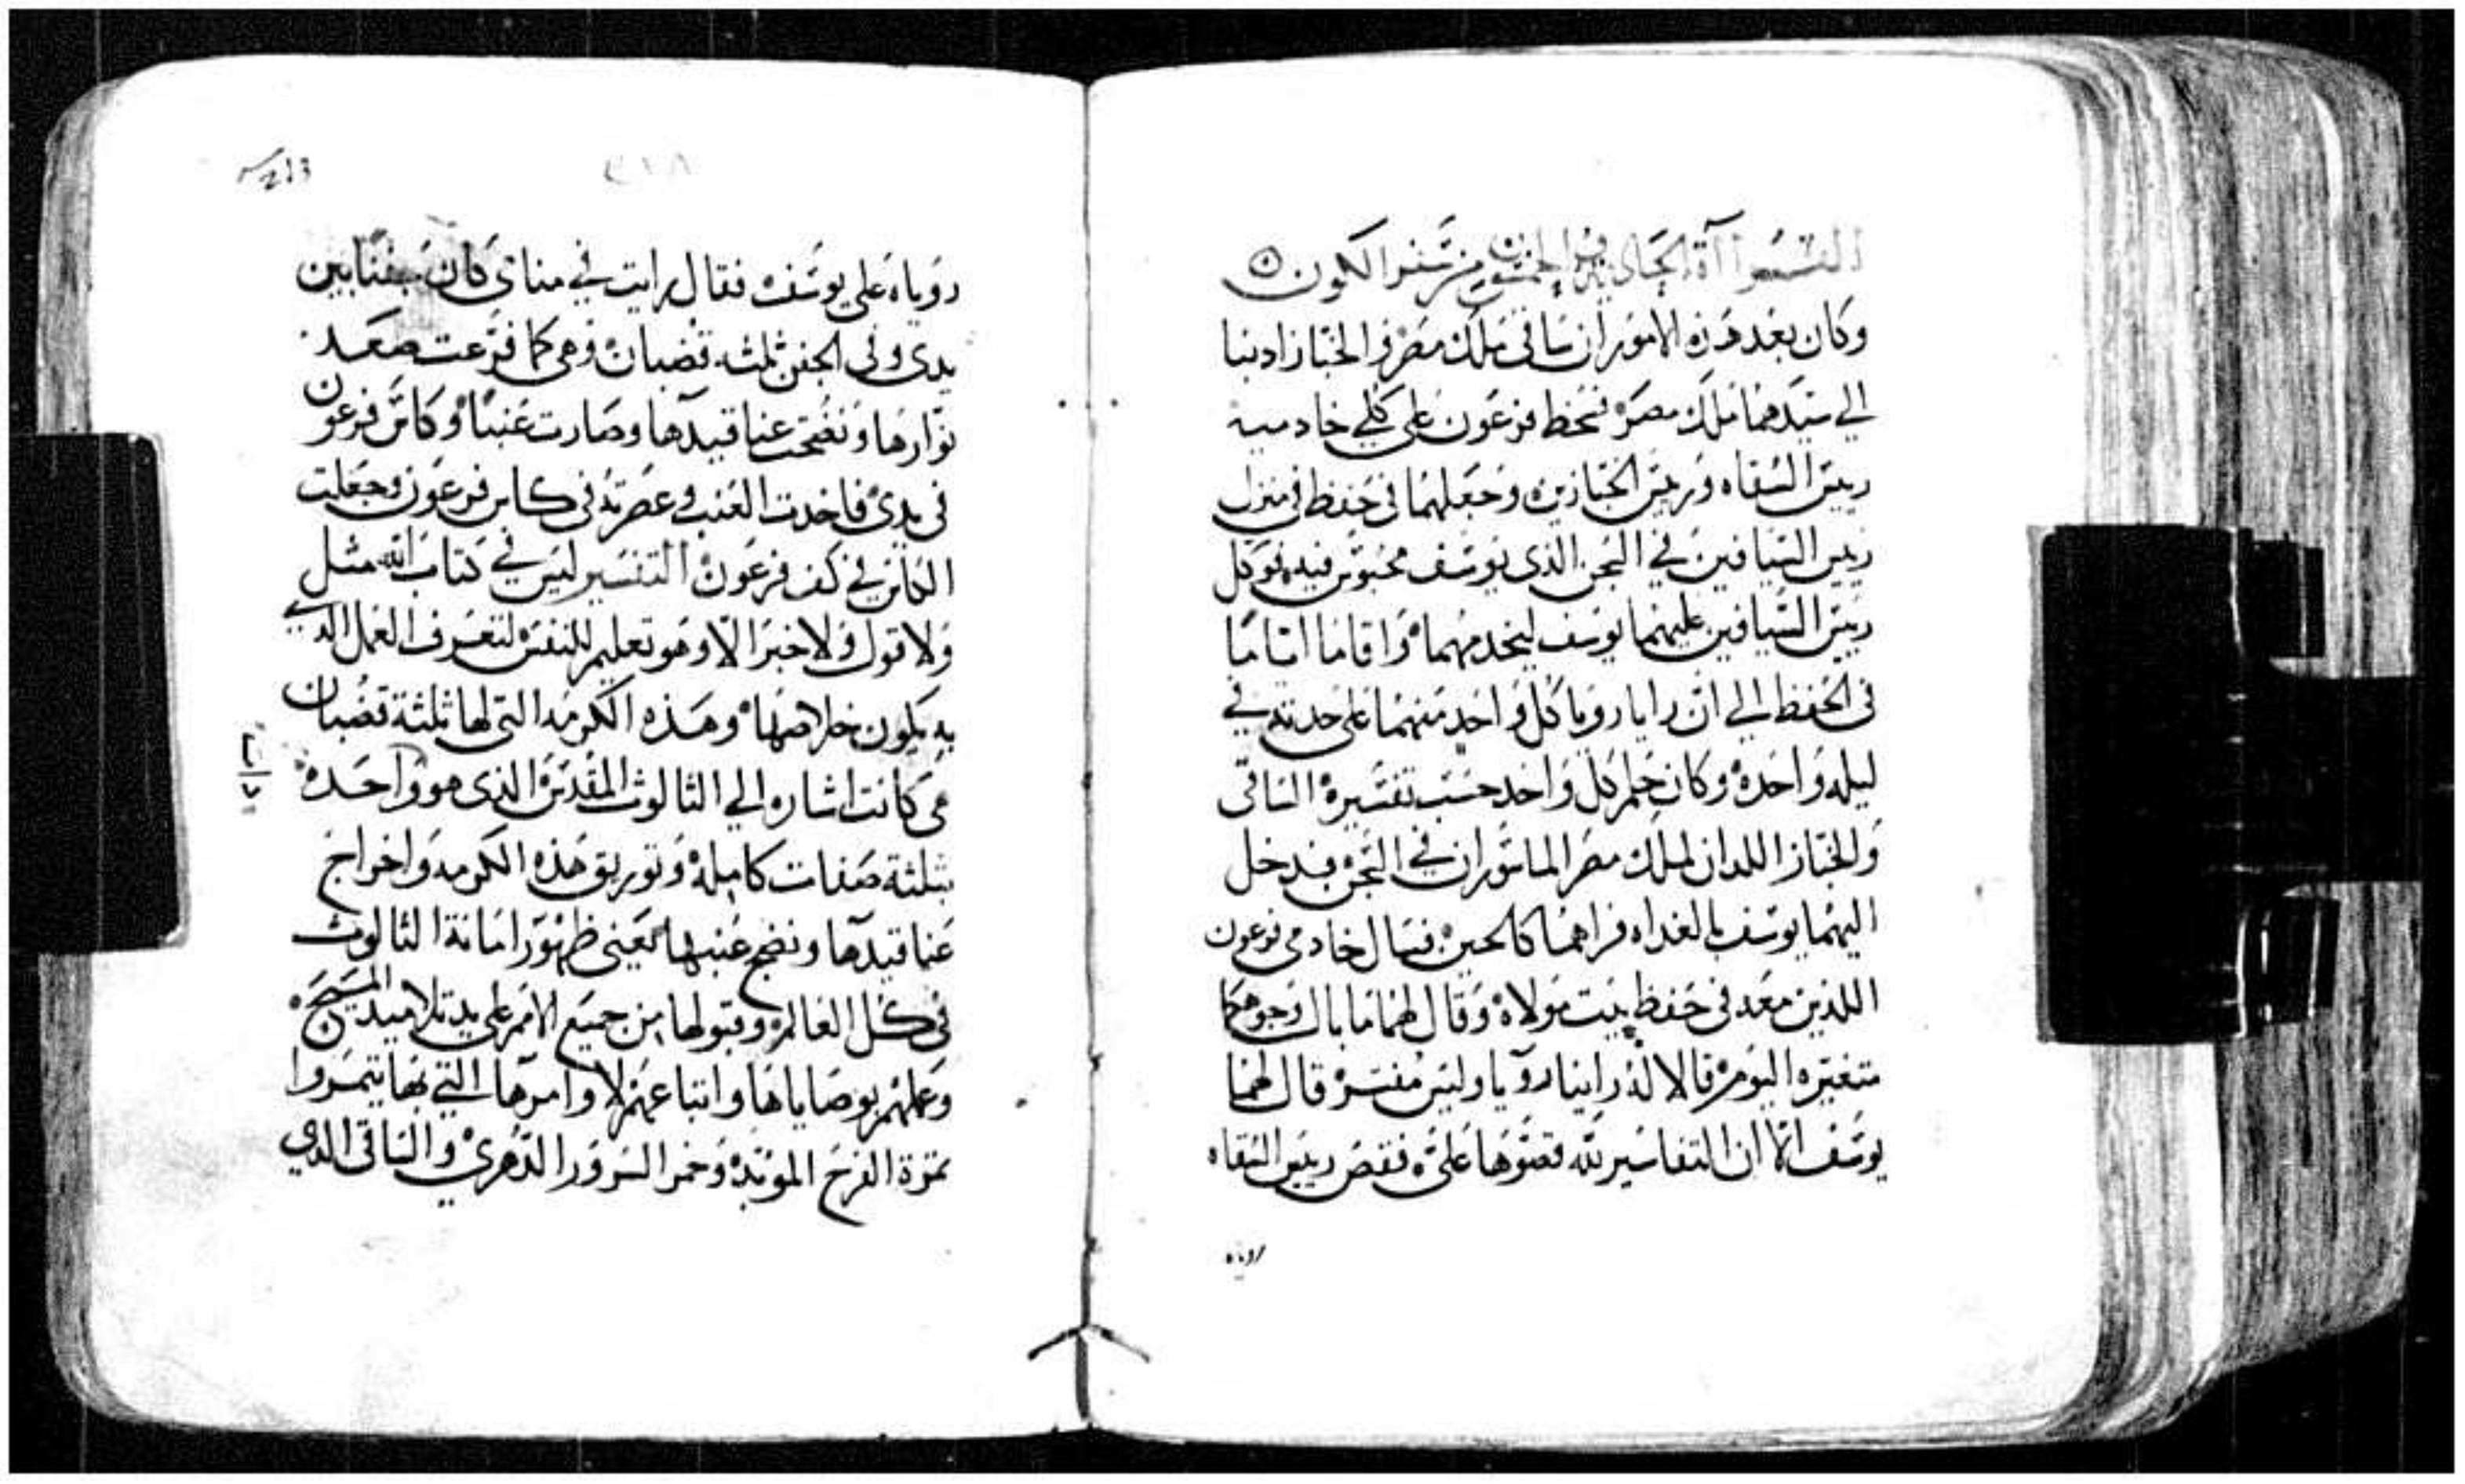 وكان بعد هذه الامور ان ساقى ملك مصر والخباز اذنبا
الي سيدهما ملك مصر فسخط فرعون علي كلي خادميه
رييس السقاه ورييس الخبازين وجعلهما فى حفظ فى منزل
رييس السيافين في السجن الذى يوسف محبوس فيه فوكل
رييس السيافين عليهما يوسف ليخدمهما واقاما اياما
فى الحفظ الي ان رايا رويا كل واحد منهما على حدته في
ليله واحده وكان حلم كل واحد حسب تفسيره الساقى
والخباز اللدان لملك مصر الماسوران في السجن فدخل
اليهما يوسف بالغداه فراهما كالحين فسال خادمى فرعون
اللذين معه فى حفظ بيت مولاه وقال لهما ما بال وجوهكما
متغيره اليوم قالا له راينا رويا وليس مفسر قال لهما
يوسف الا ان التفاسير لله قصوها علي فقص رييس السقاه
روياه
روياه على يوسف فقال رايت في مناى كان جفنا بين
يدى وفى الجفن ثلثه قضبان وهى كما فرعت صعد
نوارها ونضجت عناقيدها وصارت عنبا وكاس فرعون
فى يدى فاخدت العنب وعصرته فى كاس فرعون وجعلت
الكاس في كف فرعون التفسير ليس في كتاب الله مثل
ولا قول ولا خبر الا وهو تعليم للنفس لتعرف العمل الدي
به يكون خلاصها وهذه الكرمه التى لها ثلثة قضبان
هى كانت اشاره الي الثالوث المقدس الذى هو واحد
بثلثة صفات كامله وتوريق هذه الكرمه واخراج
عناقيدها ونضج عنبها يعنى ظهور امانة الثالوث
فى كل العالم وقبولها من جميع الامم على يد تلاميد المسيح
وعملهم بوصاياها واتباعهم لاوامرها التي بها يتمروا
ثمرة الفرح الموبد وخمر السرور الدهرى والساقى الدي